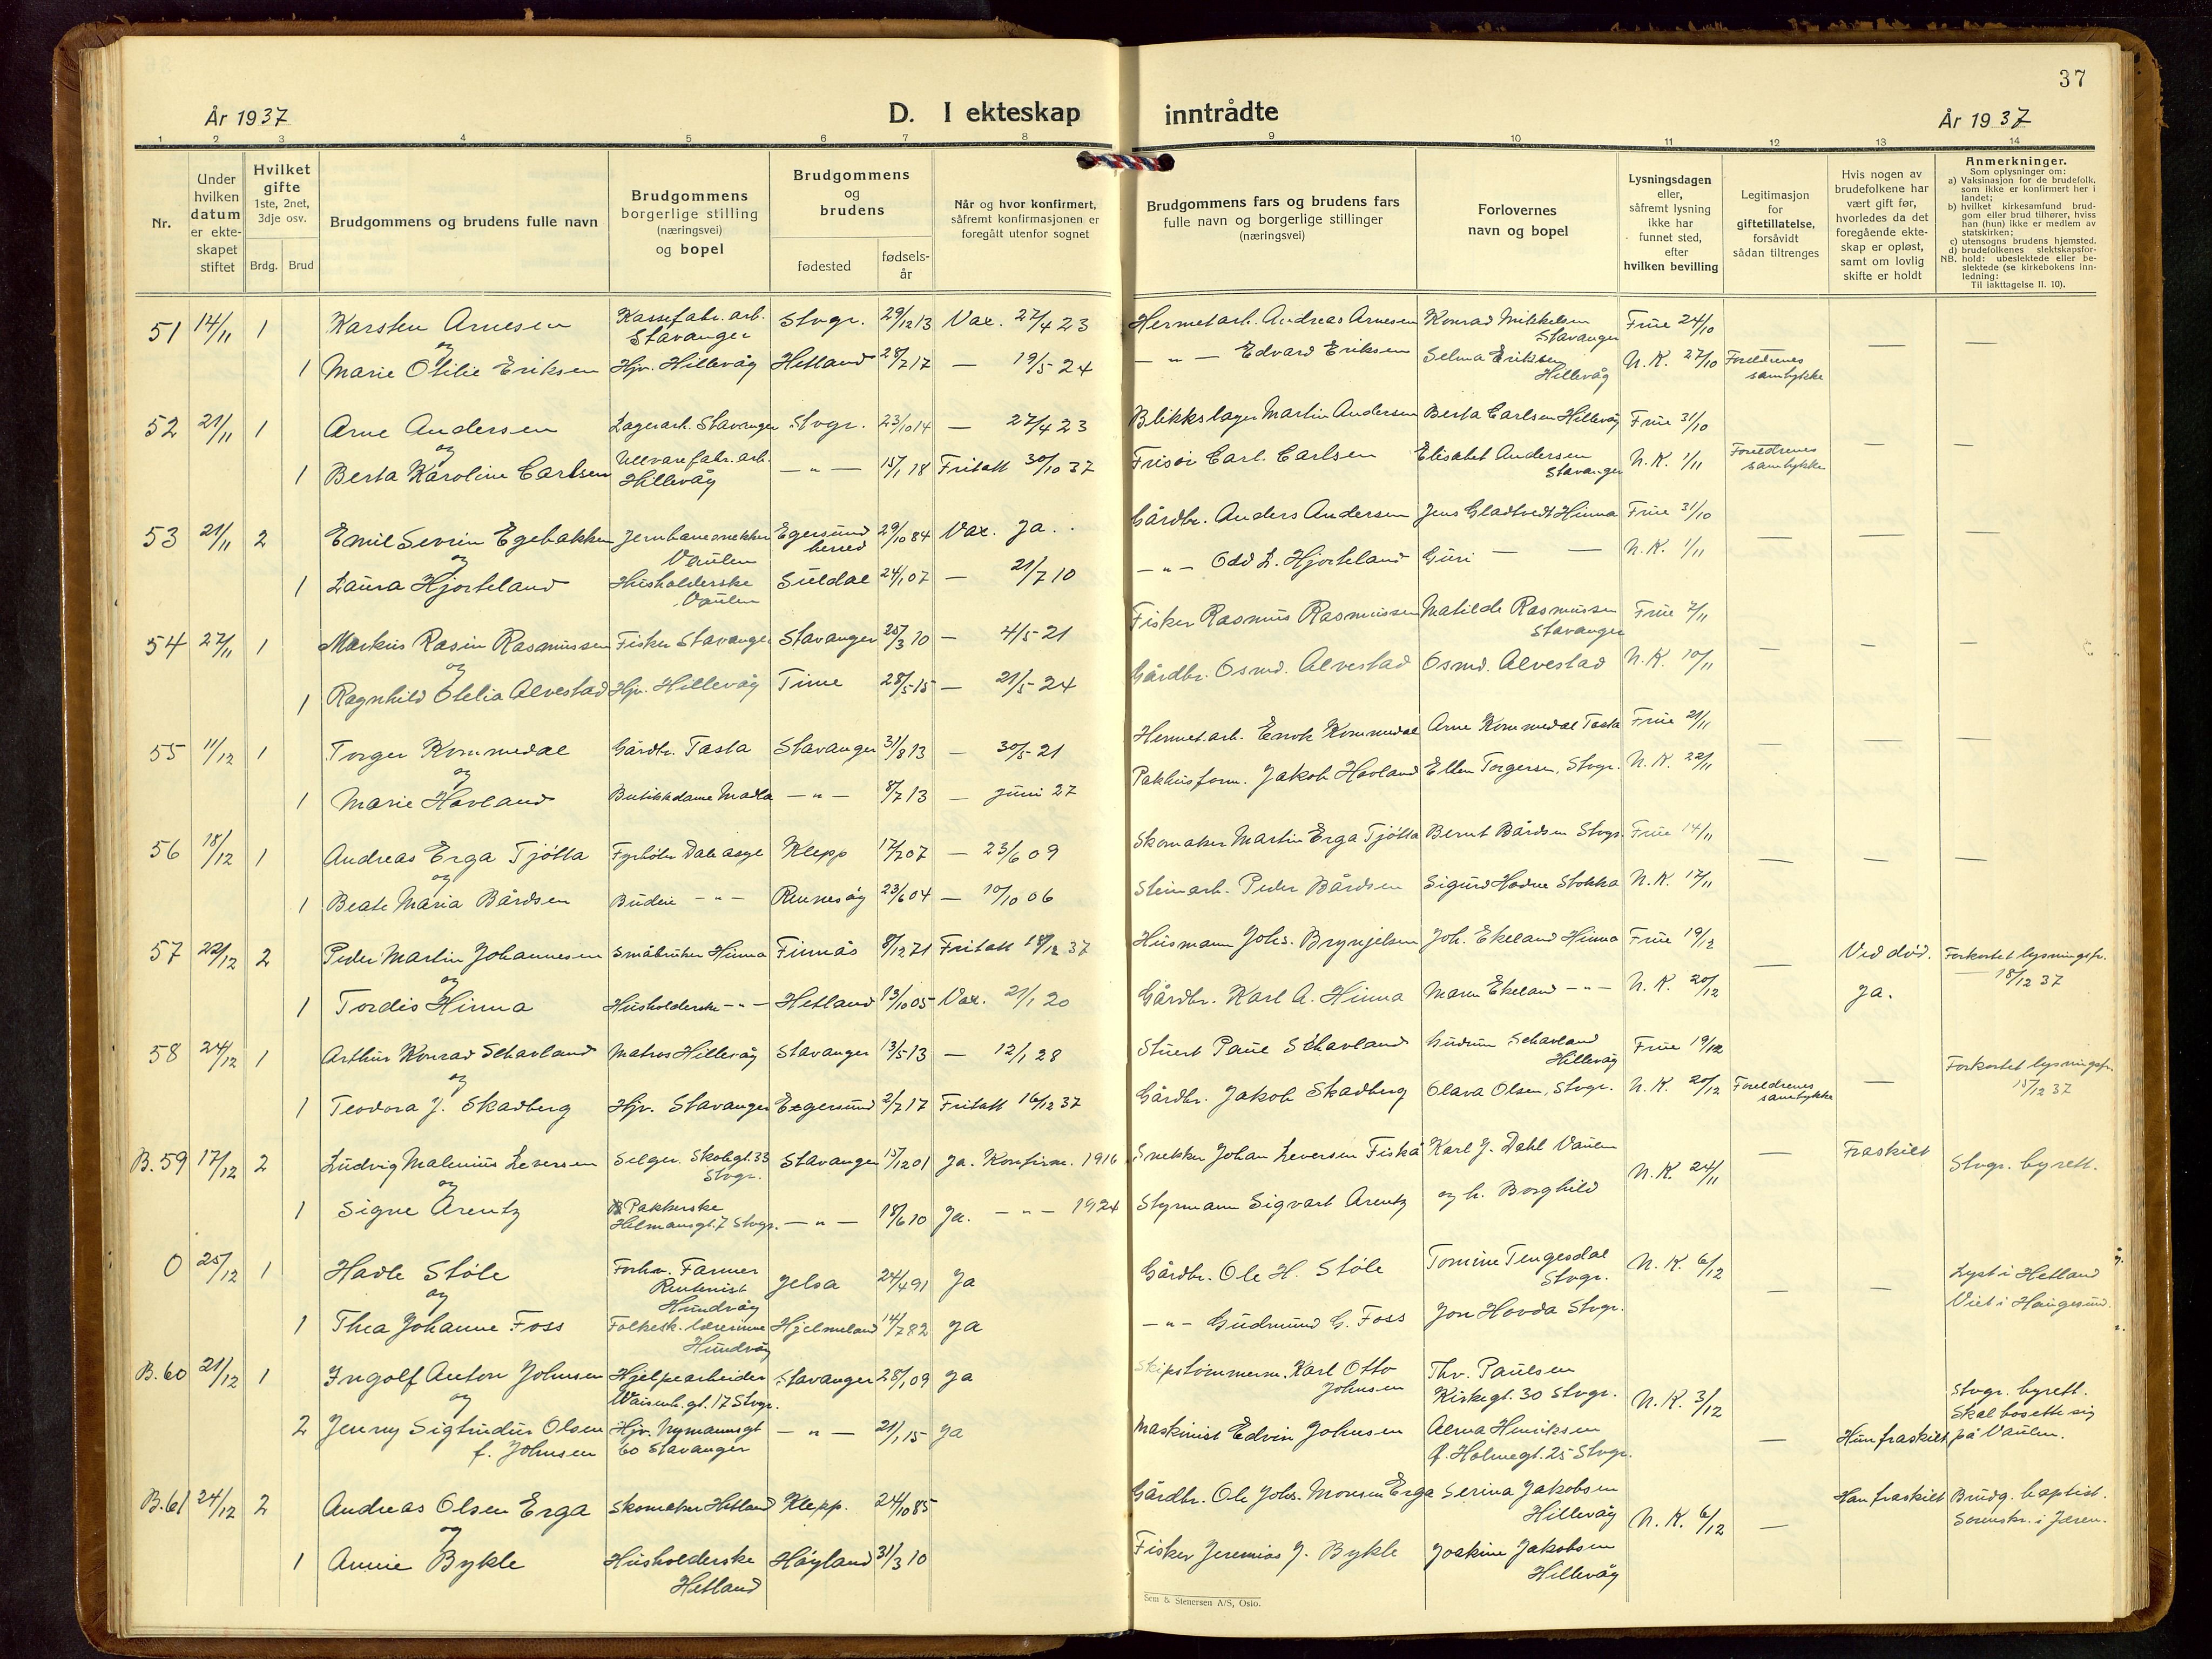 37
År 1937
D. I ekteskap inntrådte
År 1937
1 2 3 4 5 6 7 8 9 10 11 12 13 14
Nr.
Under hvilken datum er ekteskapet stiftet
Hvilket gifte 1ste, 2net, 3dje osv.
Brdg. Brud
Brudgommens og brudens fulle navn
Brudgommens borgerlige stilling (næringsvei) og bopel
Brudgommens og brudens
fødested
fødselsår
Når og hvor konfirmert, såfremt konfirmasjonen er foregått utenfor sognet
Brudgommens fars og brudens fars fulle navn og borgerlige stillinger (næringsvei)
Forlovernes navn og bopel
Lysningsdagen eller, såfremt lysning ikke har funnet sted, efter hvilken bevilling
Legitimasjon for giftetillatelse, forsåvidt sådan tiltrenges
Hvis nogen av brudefolkene har vært gift før, hvorledes da det foregående ekteskap er opløst, samt om lovlig skifte er holdt
Anmerkninger.
Som oplysninger om:
a) Vaksinasjon for de brudefolk. som ikke er konfirmert her i landet;
b) hvilket kirkesamfund brudgom eller brud tilhører, hviss han (hun) ikke er medlem av statskirken;
c) utensogns brudens hjemsted.
d) brudefolkenes slektskapsforhold: ubeslektede eller beslektede (se kirkebokens innledning:
NB.
Til iakttagelse II. 10).
51 14/11 1 Karsten Arnesen Kassefabr. arb. Stavanger Stvgr. 29/12 13 Vax. 27/4 23 Hermetarb. Andreas Arnesen Konrad Mikkelsen Stavanger Frue 24/10
og
1 Marie Otilie Eriksen Hjv. Hillevåg Hetland 28/7 17 — 19/5 24 — " — Edvard Eriksen Selma Eriksen Hillevåg N. K. 27/10 Foreldrenes samtykke — —
52 21/11 1 Arne Andersen Lagerarb. Stavanger Stvgr. 23/10 14 — 27/4 23 Blikkslager Martin Andersen Berta Carlsen Hillevåg Frue 31/10
og
1 Berta Karoline Carlsen Ullvarefabr. arb. Hillevåg — " — 15/1 18 Fritatt 30/10 37 Frisør Carl Carlsen Elisabet Andersen Stavanger N. K. 1/11 Foreldrenes samtykke — —
53 21/11 2 Emil Sevrin Egebakken Jernbanesnekker Vaulen Egersund herred 29/10 84 Vax. Ja. Gårdbr. Anders Andersen Jens Gladtvedt Hinna Frue 31/10
og
1 Laura Hjorteland Husholderske Vaulen Suldal 24/1 07 — 21/7 10 — " — Odd L. Hjorteland Guri — — N. K. 1/11 — — —
54 27/11 1 Markus Rasin Rasmussen Fisker Stavanger Stavanger 25/3 10 — 4/5 21 Fisker Rasmus Rasmussen Matilde Rasmussen Stavanger Frue 7/11
og
1 Ragnhild Otelia Alvestad Hjv. Hillevåg Time 28/5 15 — 21/5 24 Gårdbr. Osmd. Alvestad Osmd. Alvestad N. K. 10/11 — — —
55 11/12 1 Torger Kommedal Gårdbr. Tasta Stavanger 31/8 13 — 30/5 21 Hermet.arb. Enok Kommedal Arne Kommedal Tasta Frue 21/11
og
1 Marie Havland Butikkdame Madla — " — 8/7 13 — Juni 27 Pakhusform. Jakob Havland Ellen Torgersen, Stvgr. N. K. 22/11 — — —
56 18/12 1 Andreas Erga Tjøtta Fyrbøter Dale asyl Klepp 17/2 07 — 23/6 09 Skomaker Martin Erga Tjøtta Bernt Bårdsen Stvgr. Frue 14/11
og
1 Beate Maria Bårdsen Budeie — " — Rennesøy 23/6 04 — 10/10 06 Steinarb. Peder Bårdsen Sigurd Hodne Stokka N. K. 17/11 — — —
57 22/12 2 Peder Martin Johannesen Småbruker Hinna Finnås 8/12 71 Fritatt 18/12 37 Husmann Johs. Brynjelsen Joh. Ekeland Hinna Frue 19/12 Ved død. Forkortet lysningsfr. 18/12 37
og
1 Tordis Hinna Husholderske — " — Hetland 13/10 05 Vax. 21/1 20 Gårdbr. Karl A. Hinna Maren Ekeland — " — N. K. 20/12 — Ja.
58 24/12 1 Arthur Konrad Schavland Matros Hillevåg Stavanger 13/5 13 — 12/1 28 Stuert Paul Schavland Gudrun Schavland Hillevåg Frue 19/12 Forkortet lysningsfr. 15/12 37
og
1 Teodora J. Skadberg Hjv. Stavanger Egersund 2/7 17 Fritatt 16/12 37 Gårdbr. Jakob Skadberg Olava Olsen, Stvgr. N. K. 20/12 Foreldrenes samtykke —
B. 59 17/12 2 Ludvig Malenius Leversen Selger. Skolegt. 33 Stvgr. Stavanger 15/12 01 Ja. Konfirm. 1916 Snekker Johan Leversen Fiskå Karl J. Dahl Vaulen N. K. 24/11 — Fraskilt Stvgr. byrett.
og
1 Signe Arentz Pakkerske Helmansgt. 7 Stvgr. — " — 18/6 10 Ja. — " — 1924 Styrmann Sigvart Arentz og h. Borghild
0 25/12 1 Hadle Støle Forhv. Farmer Rentenist Hundvåg Jelsa 24/4 91 Ja Gårdbr. Ole H. Støle Tomine Tengesdal Stvgr. N. K. 6/12 — — Lyst i Hetland Viet i Haugesund.
og
1 Thea Johanne Foss Folkesk. lærerinne Hundvåg Hjelmeland 14/7 82 Ja — " — Gudmund G. Foss Jon Hovda Stvgr.
B. 60 21/12 1 Ingolf Anton Johnsen Hjelpearbeider Waisenh. gt. 17 Stvgr. Stavanger 28/1 09 Ja Skipstømmerm. Karl Otto Johnsen Thv. Paulsen Kirkegt. 30 Stvgr. N. K. 3/12 Stvgr. byrett. Skal bosette sig på Vaulen.
og
2 Jenny Sigtrudur Olsen f. Johnsen Hjv. Nymannsgt 60 Stavanger — " — 21/1 15 Ja Maskinist Edvin Johnsen Alma Henriksen Holmegt. 25 Stvgr. — Hun fraskilt
B. 61 24/12 2 Andreas Olsen Erga Skomaker Hetland Klepp. 24/10 85 Gårdbr. Ole Johs. Monsen Erga Serina Jakobsen Hillevåg N. K. 6/12 — Han fraskilt Brudg. baptist. Sorenskr. i Jæren.
og
1 Annie Bykle Husholderske Hetland Høyland 31/3 10 Fisker Jeremias J. Bykle Joakine Jakobsen Hillevåg
Sem & Stenersen A/S, Oslo.